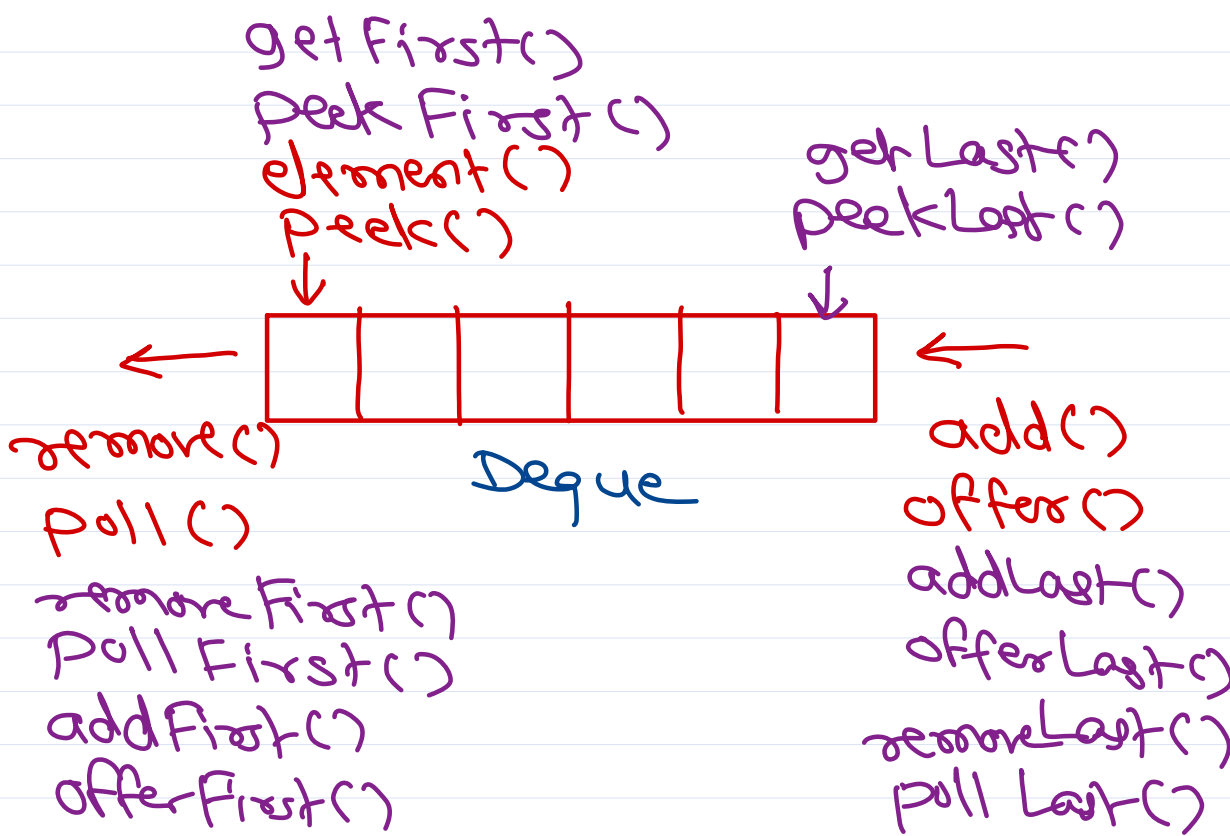 getFirst()
peekFirst()
element()
peek()
getLast()
peekLast()
remove()
poll()
removeFirst()
pollFirst()
addFirst()
offerFirst()
Deque
add()
offer()
addLast()
offerLast()
removeLast()
pollLast()